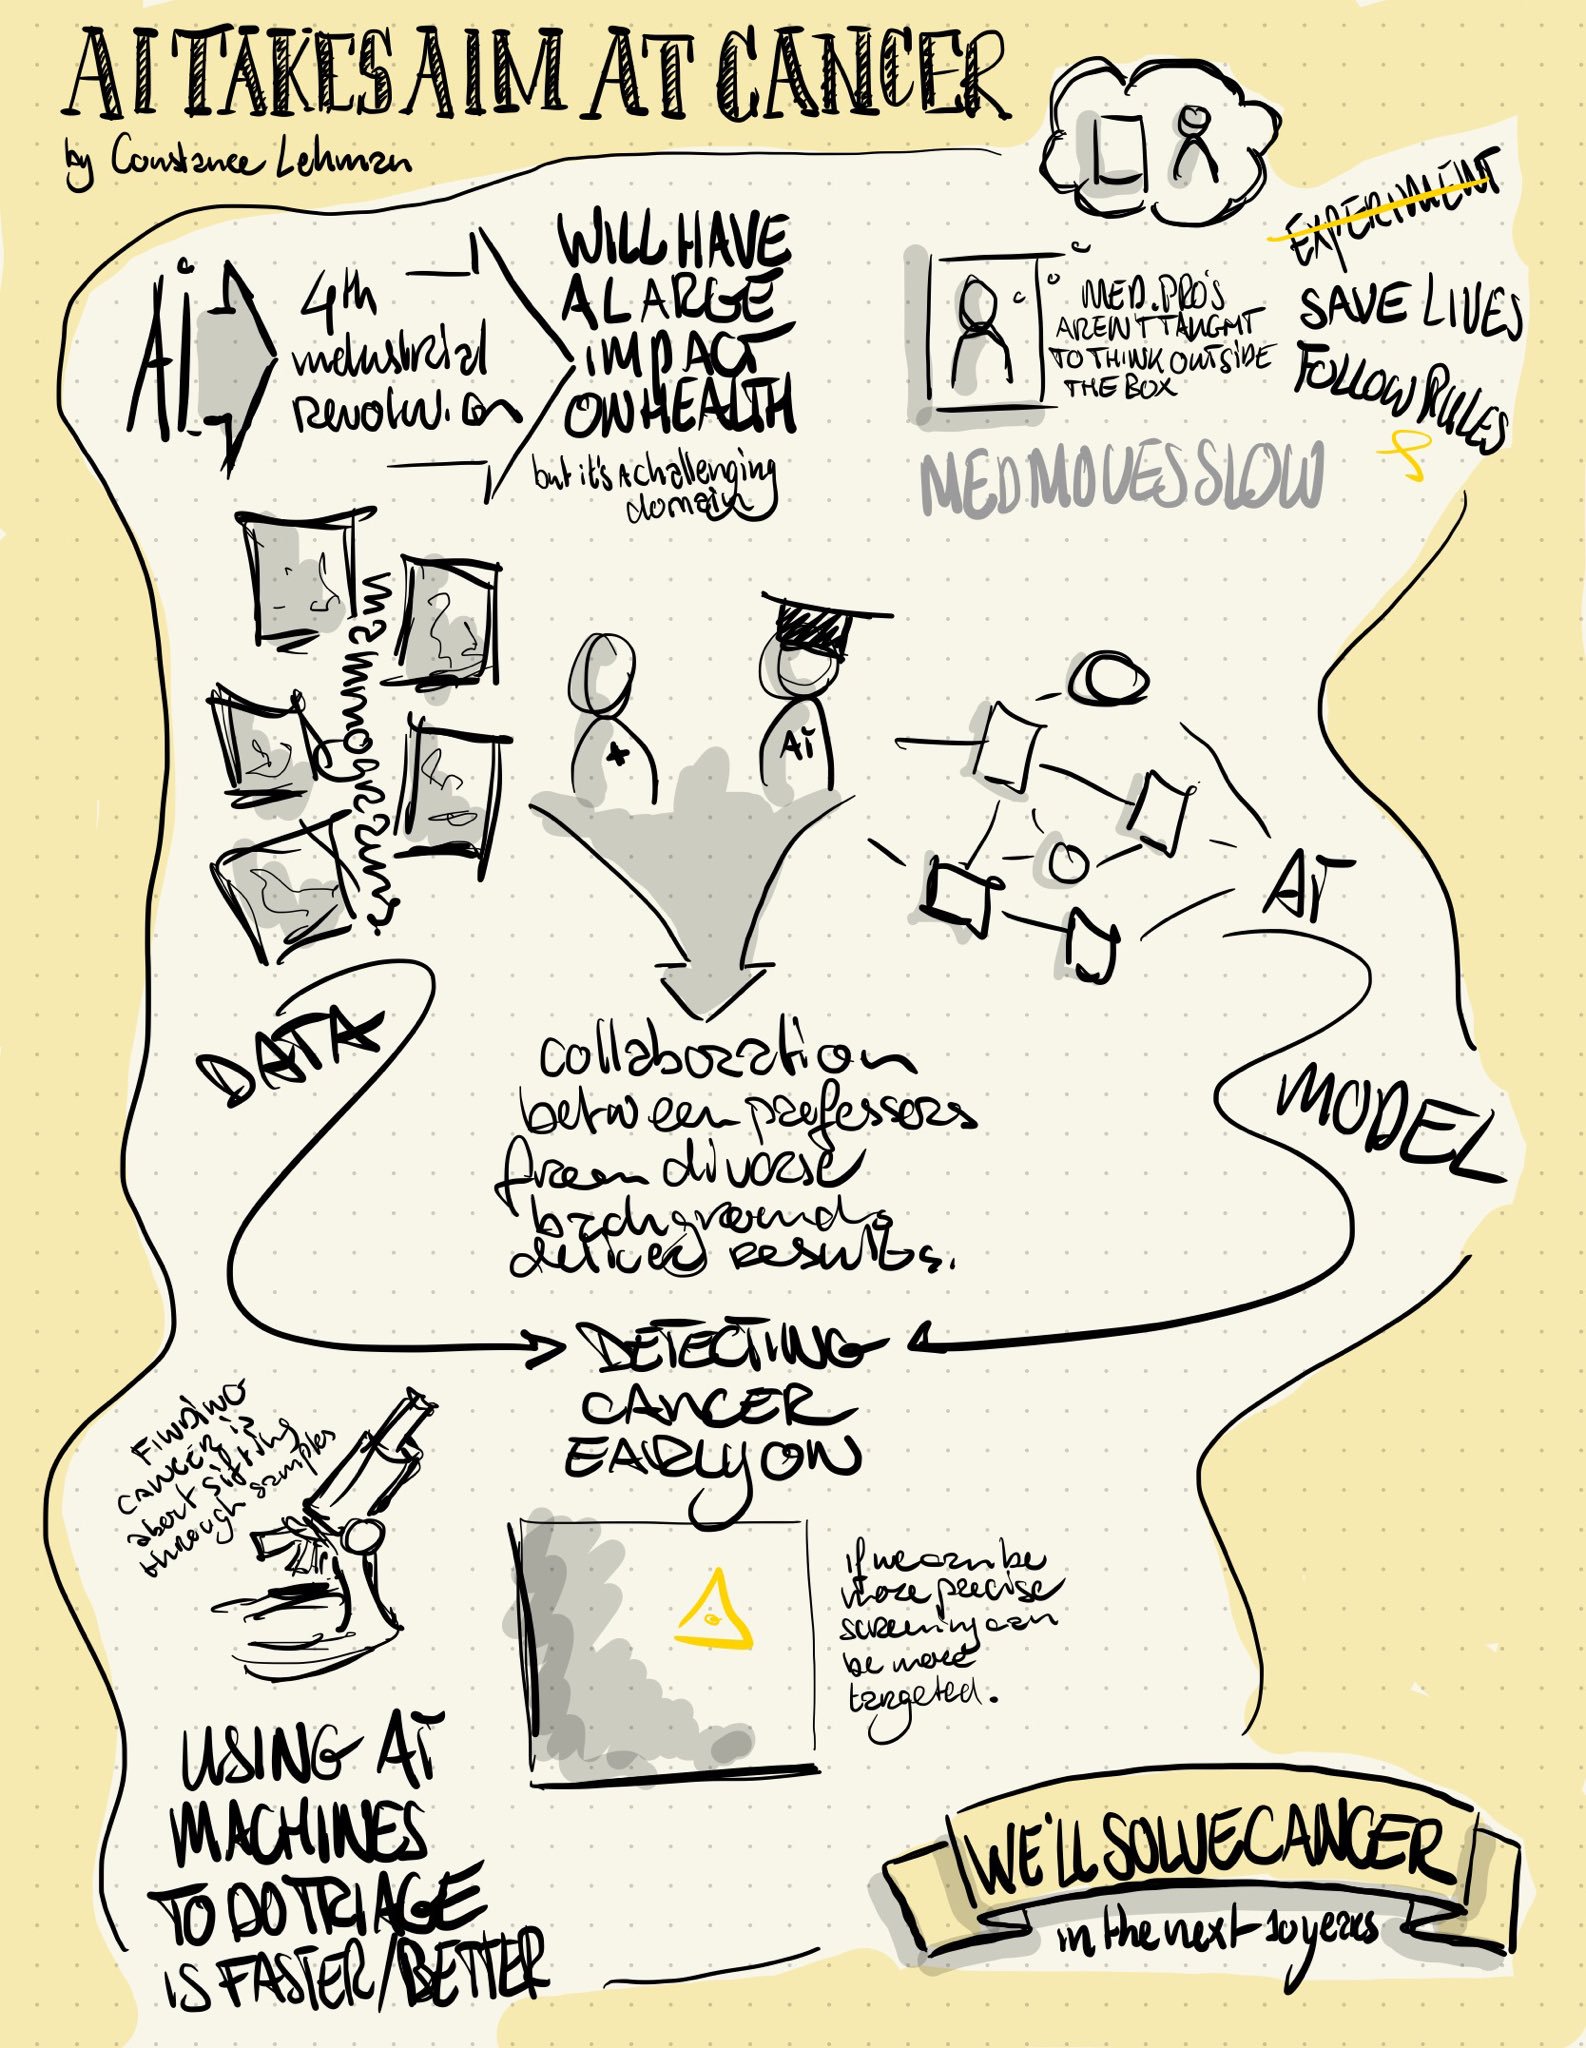 AI TAKES AIM AT CANCER
by Constance Lehman
Ai
4th
industrial
revolution
WILL HAVE
A LARGE
IMPACT
ON HEALTH
but it's a challenging
domain
MED. PRO'S
AREN'T TAUGHT
TO THINK OUTSIDE
THE BOX
MED MOVES SLOW
EXPERIMENT
SAVE LIVES
FOLLOW RULES
Ai
AI
DATA
MODEL
collaboration
between professors
from diverse
backgrounds
deliver results.
DETECTING
CANCER
EARLY ON
FINDING
CANCER is
about sifting
through samples
if we can be
more precise
screening can
be more
targeted.
USING AI
MACHINES
TO DO TRIAGE
IS FASTER/BETTER
WE'LL SOLVE CANCER
in the next 10 years